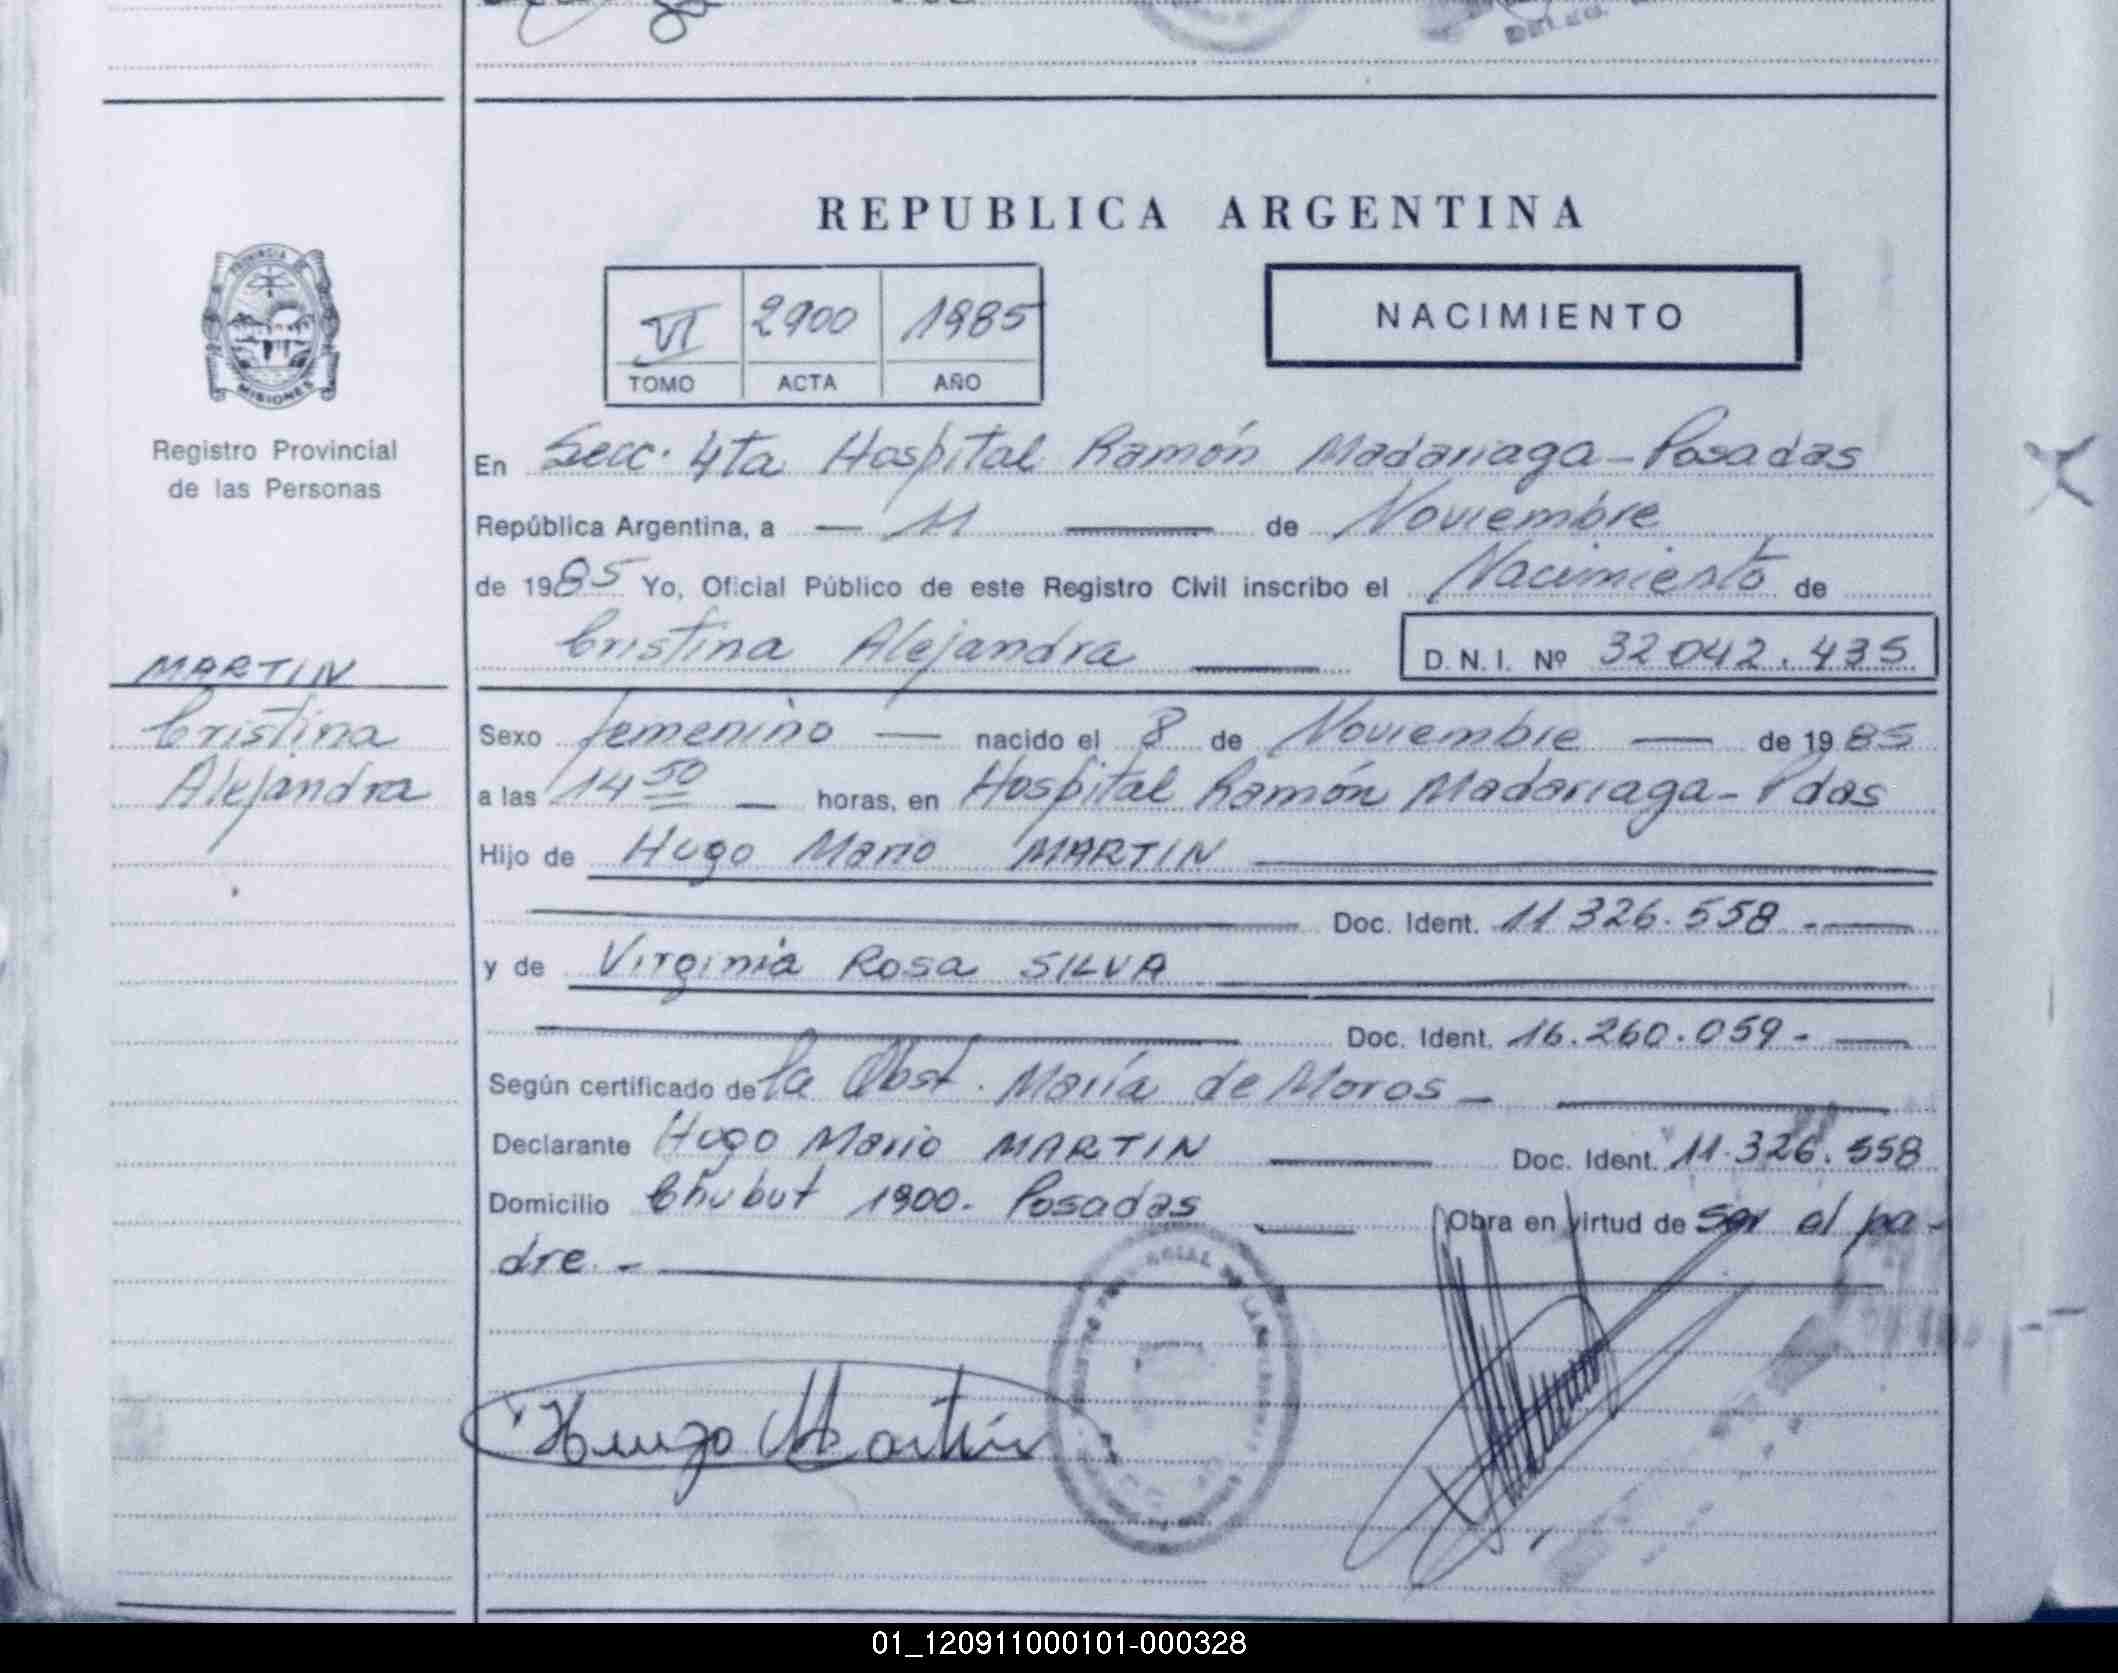 REPUBLICA ARGENTINA
VI 2900 1985
TOMO ACTA AÑO
NACIMIENTO
PROVINCIA DE
MISIONES
Registro Provincial
de las Personas
MARTIN
Cristina
Alejandra
En Secc. 4ta Hospital Ramón Madariaga - Posadas
República Argentina, a — 11 — de Noviembre
de 1985 Yo, Oficial Público de este Registro Civil inscribo el Nacimiento de
Cristina Alejandra — D.N.I. Nº 32042.435
Sexo femenino — nacido el 8 de Noviembre — de 1985
a las 14 50 — horas, en Hospital Ramón Madariaga - Pdas
Hijo de Hugo Mario MARTIN —
— Doc. Ident. 11326.558 - —
y de Virginia Rosa SILVA —
— Doc. Ident. 16.260.059 - —
Según certificado de la Obst. María de Moros - —
Declarante Hugo Mario MARTIN — Doc. Ident. 11.326.558
Domicilio Chubut 1900. Posadas — Obra en virtud de ser el pa-
dre. - —
Hugo Martín
01_120911000101-000328